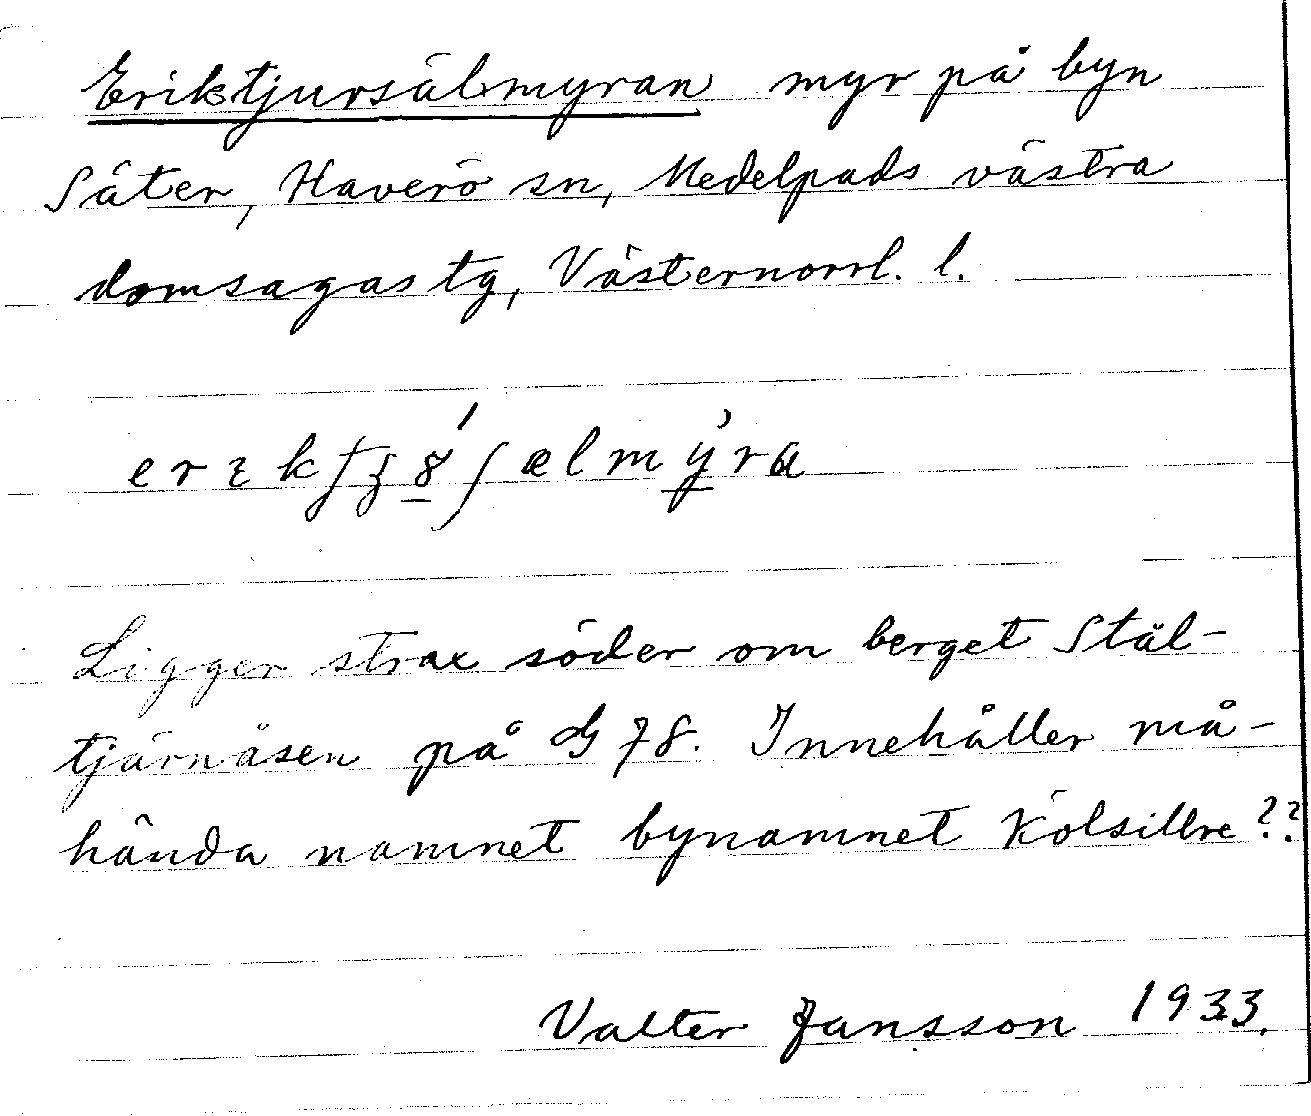 Eriktjursälsmyran myr på byn
Säter, Haverö sn, Medelpads västra
domsagas tg, Västernorrl. l.
Ligger strax söder om berget Stäl-
tjärnåsen på G 78. Innehåller må-
hända namnet bynamnet Kölsillre??
Valter Jansson 1933.